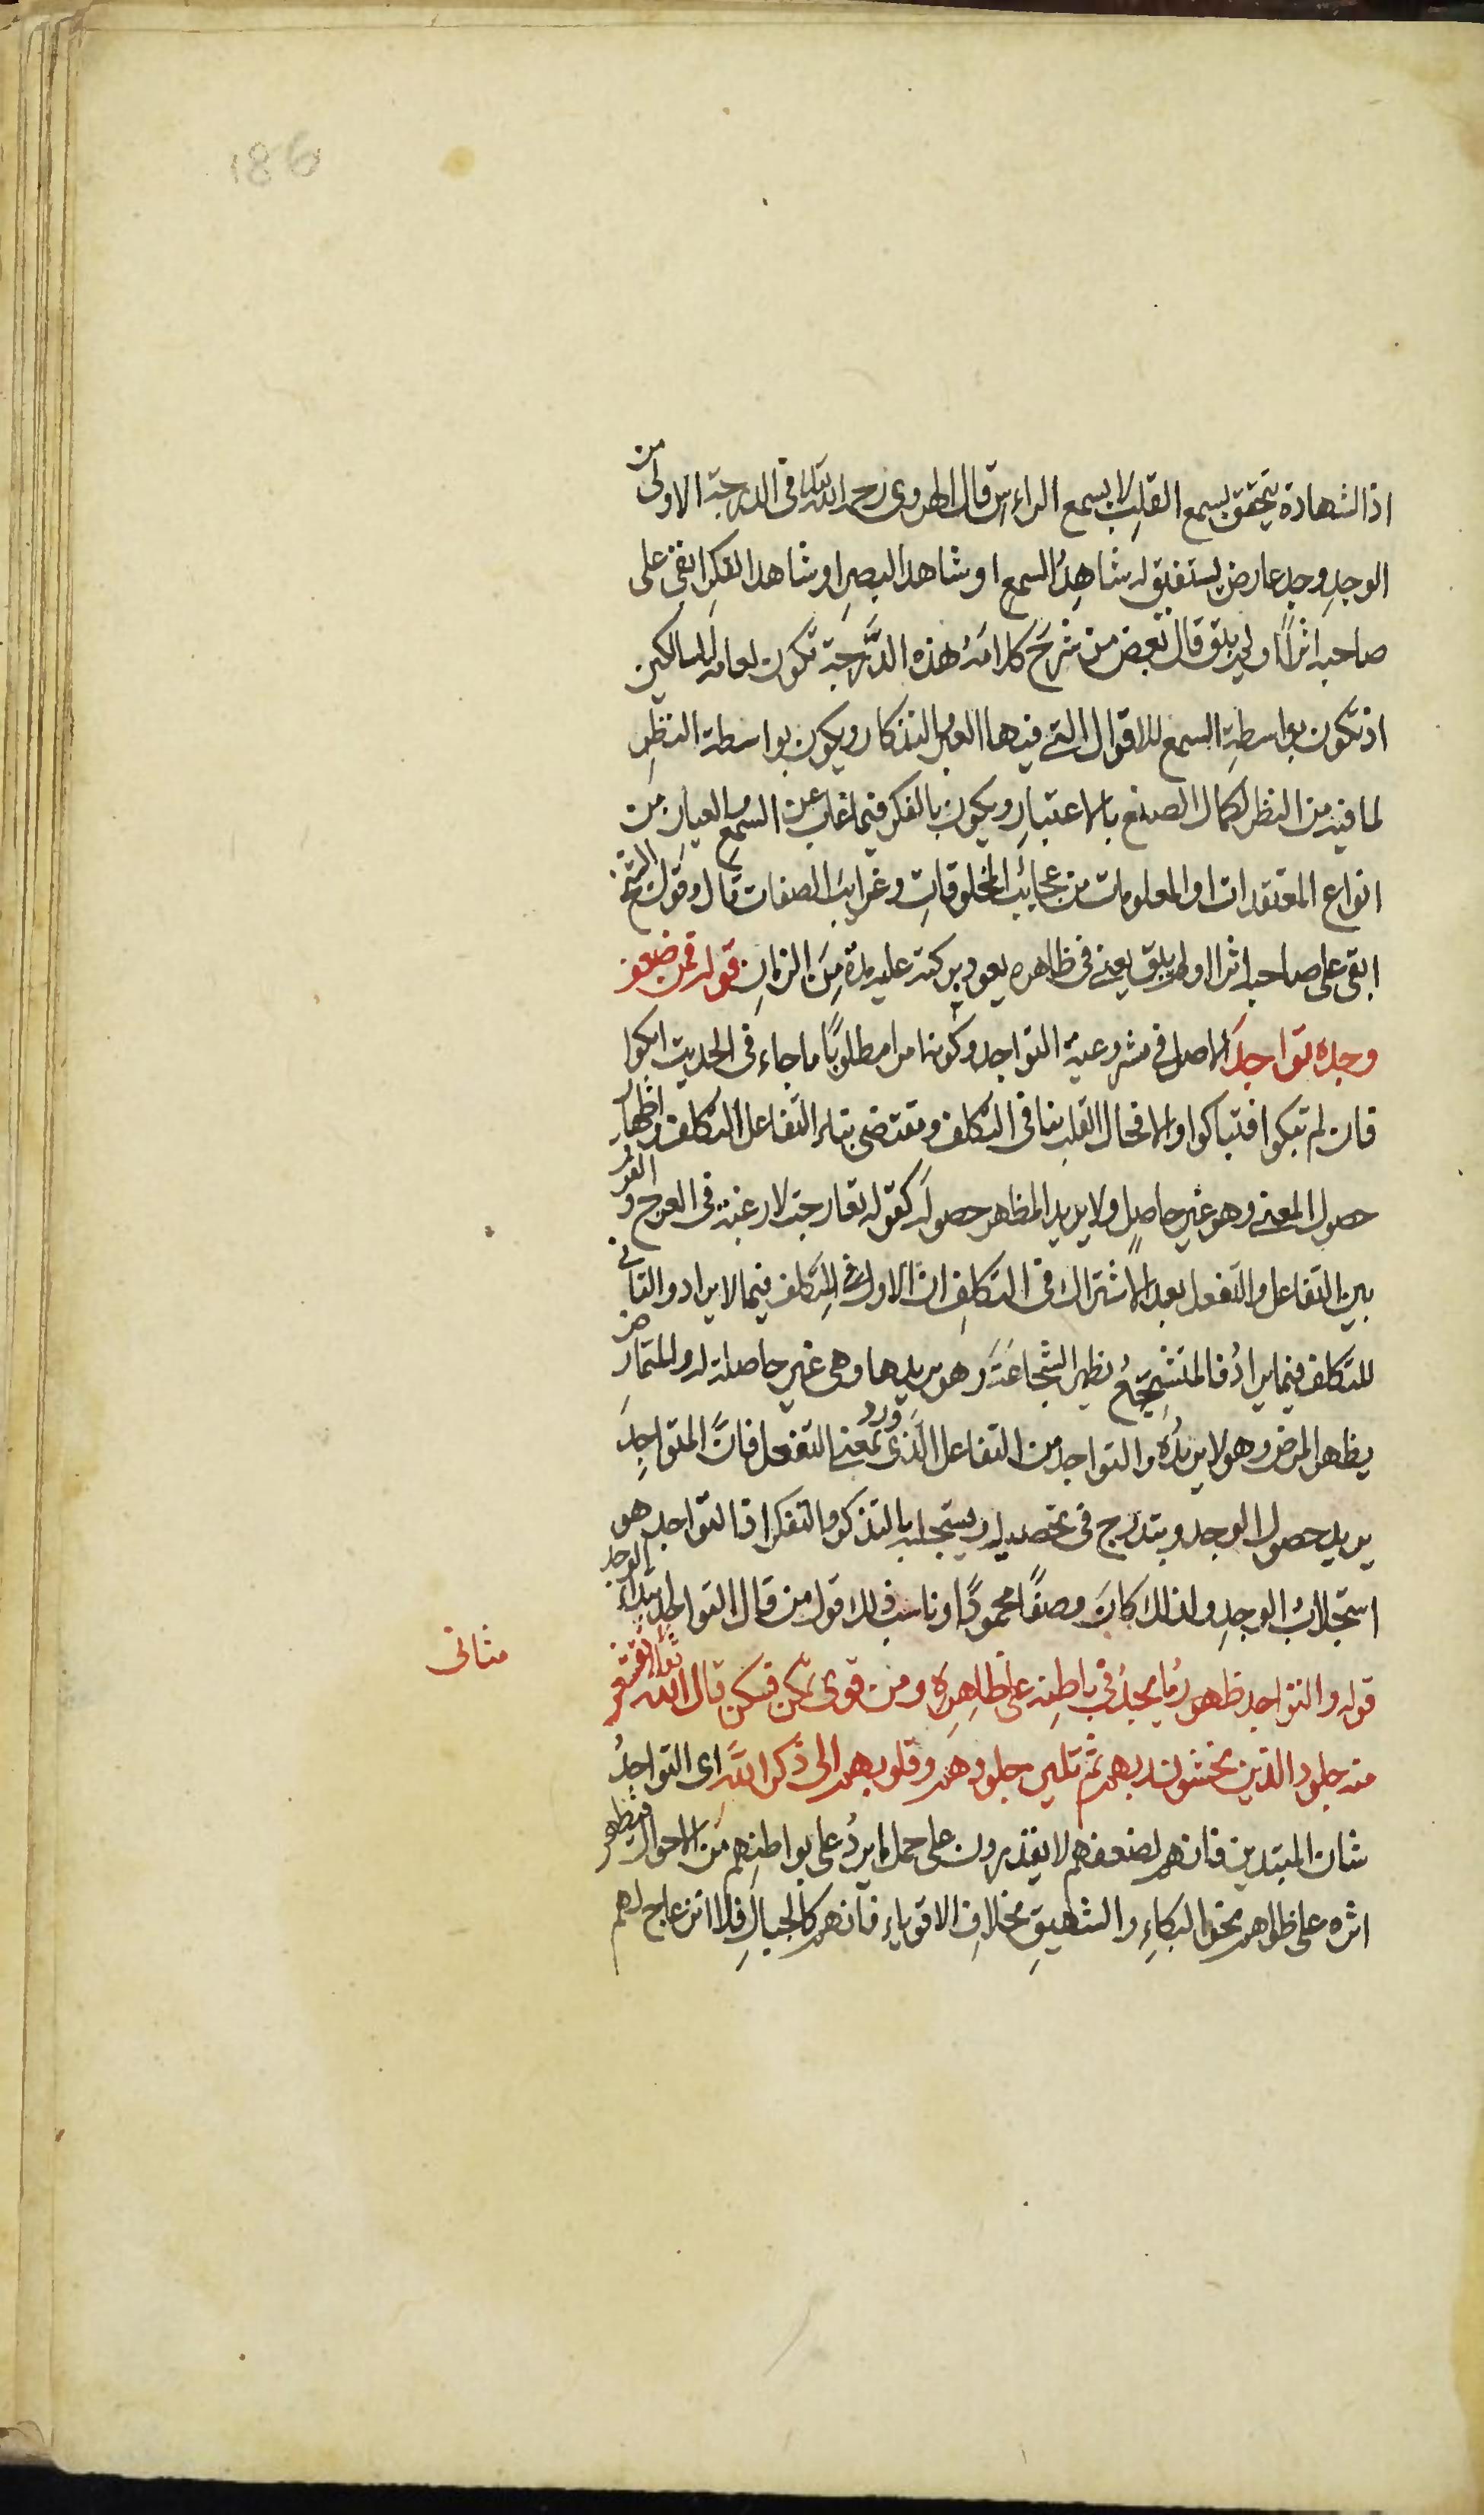 186
اذ الشهادة يتحقق بسمع القلب لا بسمع الراس قال الهروى رحمه الله تعالى فى الدرجة الاولى من
الوجد وجد عارض يستفيق له شاهد السمع او شاهد البصر او شاهد الفكر ابقى على
صاحبه اثرا او لم يبق قال بعض من شرح كلامه هذه الدرجة تكون لعامة السالكين
اذ تكون بواسطة السمع للاقوال التى فيها التذكار ويكون بواسطة النظر
لما فيه من النظر لكمال الصنع بالاعتبار ويكون بالفكر فيما غاب عن السمع و العيان من
انواع المعتقدات او المعلومات من عجائب المخلوقات وغرايب الصفات قال وقول الشيخ
ابقى على صاحبه اثرا او لم يبق يعنى فى ظاهره يعود بركته عليه مدة من الزمان قوله فمن ضعف
وجده تواجد الاصل فى مشروعية التواجد وكونه امرا مطلوبا ما جاء فى الحديث ابكوا
فان لم تبكوا فتباكوا والا فحال القلب ينافى التكلف ومقتضى بناء التفاعل التكلف و اظهار
حصول المعنى وهو غير حاصل ولا يريد المظهر حصوله كقوله تعارجت لا رغبة فى العرج و الفرق
بين التفاعل والتفعل بعد الاشتراك فى التكلف ان الاول فى التكلف فيما لا يراد والثانى
للتكلف فيما يراد فالمتشجع يظهر الشجاعة وهو يريدها وهى غير حاصلة له والمتمارض
يظهر المرض وهو لا يريده والتواجد من التفاعل الذى ورد بمعنى التفعل فان المتواجد
يريد حصول الوجد ويتدرج فى تحصيله ويستجلبه بالتذكر والتفكر فالتواجد هو
استجلاب الوجد ولذلك كان وصفا محمودا وناسب ذلك قول من قال التواجد ابتداء الوجد
قوله والتواجد ظهور ما يجد فى باطنه على ظاهره ومن قوى تمكن فسكن قال الله تعالى تقشعر
مثانى
منه جلود الذين يخشون ربهم ثم تلين جلودهم وقلوبهم الى ذكر الله اى التواجد
شان المبتدين فانهم لضعفهم لا يقدرون على حمل ما يرد على بواطنهم من الاحوال فيظهر
اثره على ظواهرهم نحو البكاء والشهيق بخلاف الاقوياء فانهم كالجبال فلا انزعاج لهم